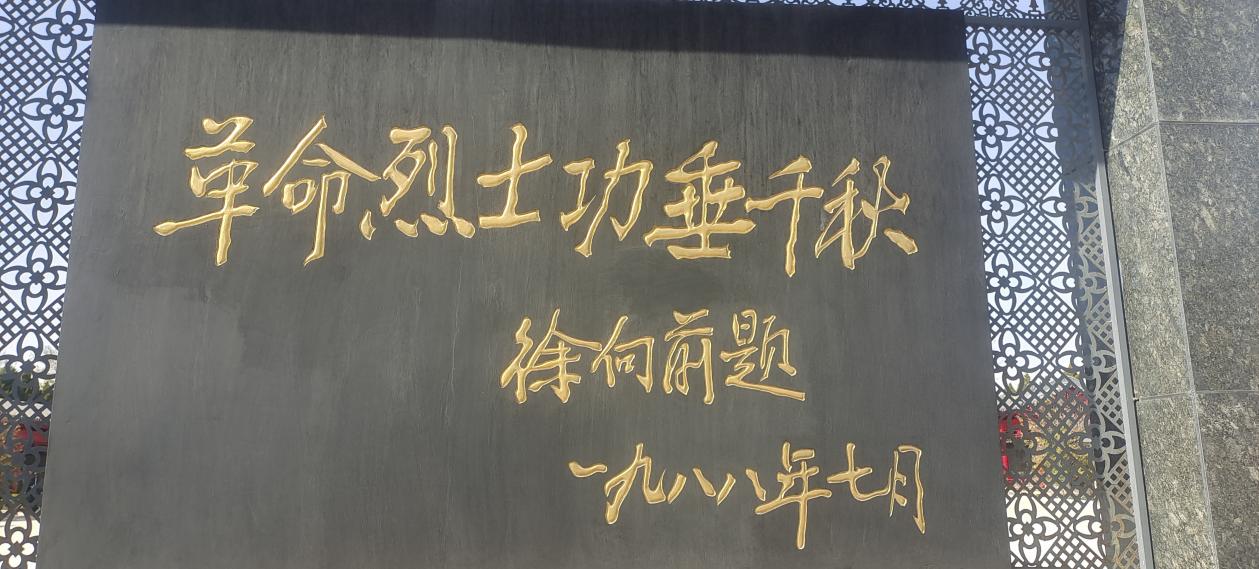 革命烈士功垂千秋
徐向前题
一九八八年七月